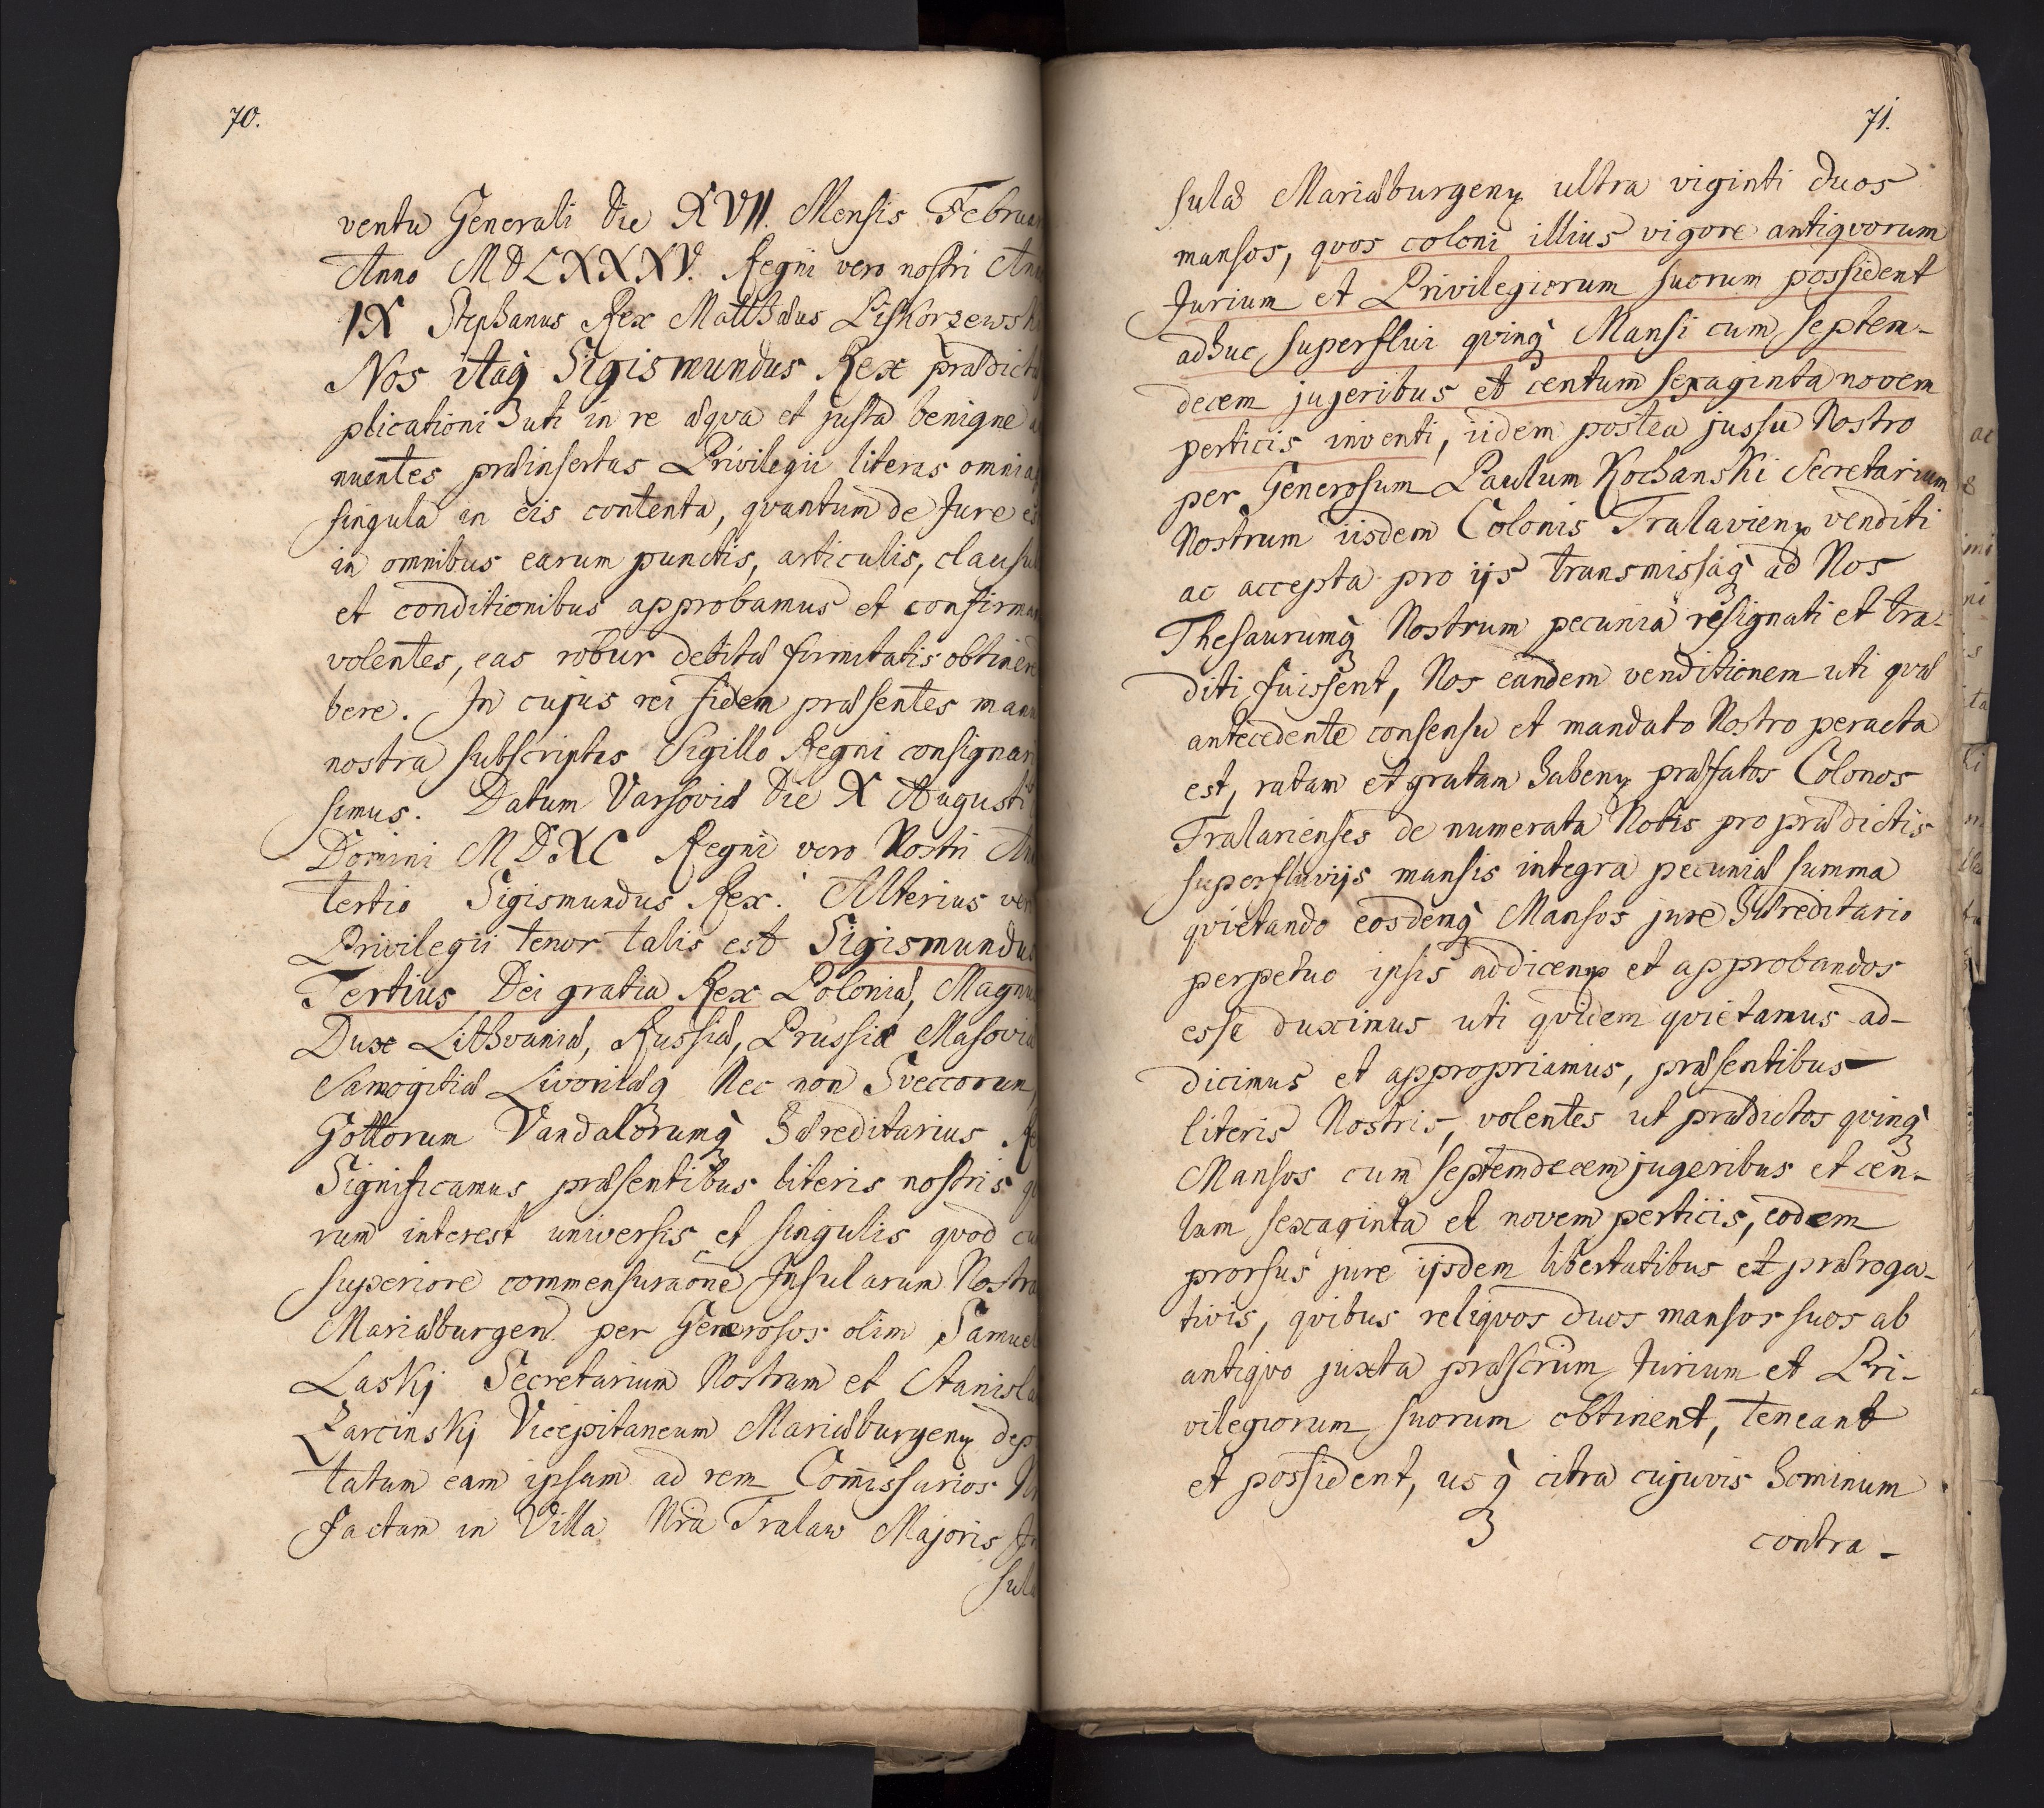 70.
ventu Generali die XVII. Mensis Februar
Anno MDLXXXV. Regni vero nostri An
IX Stephanus Rex Matthæus Piskorzewsk
Nos itaq Sigismundus Rex prædict
plicationi uti in re æqva et justa benigne a
nuentes præinsertas Privilegii literas omnia
singula in eis contenta, qvantum de Jure e
in omnibus earum punctis, articulis, clausu
et conditionibus approbamus et confirma
volentes, eas robur debitæ firmitatis obtinere
bere. In cujus rei fidem præsentes manu
nostra subscriptas Sigillo Regni consignar
simus. Datum Varsoviæ die X Augusti
Domini MDXC Regni vero Nostri An
tertio Sigismundus Rex. Alterius ver
Privilegii tenor talis est Sigismundus
Tertius Dei gratia Rex Poloniæ, Magnus
Dux Lithvaniæ, Russiæ, Prussiæ Masoviæ
Samogitiæ Livoniæq Nec non Sveccorum,
Gottorum Vandalorumq hæreditarius Re
Significamus præsentibus literis nostris qv
rum interest universis et singulis qvod cu
superiore commensuraone Insularum Nostra
Mariæburgen. per Generosos olim Samuel
Laskj Secretarium Nostrum et Stanisla
Zarcinskj Vicepitaneum Mariæburgen dep
tatum eam ipsam ad rem Comissarios N
factam in Villa Nra Tralaw Majoris In
sulæ
71.
sulæ Mariæburgen ultra viginti duos
mansos, qvos coloni illius vigore antiqvorum
Jurium et Privilegiorum suorum possident
adhuc superflui qvinq Mansi cum septem-
decem jugeribus et centum sexaginta novem
perticis inventi, iidem postea jussu Nostro
per Generosum Paulum Kochanski Secretarium
Nostrum iisdem Colonis Tralavien venditi
ac accepta pro ijs transmissaq ad Nos
Thesaurumq Nostrum pecunia resignati et tra-
diti fuissent, Nos eandem venditionem uti qvæ
antecedente consensu et mandato Nostro peracta
est, ratam et gratam haben præfatos Colonos
Tralarienses de numerata Nobis pro prædictis
superfluviis mansis integra pecuniæ summa
qvietando eosdemq Mansos jure hæreditario
perpetuo ipsis addicen et approbandos
esse duximus uti qvidem qvietamus ad-
dicimus et appropriamus, præsentibus
literis Nostris, volentes ut prædictos qvinq
Mansos cum septemdecem jugeribus et cen-
tum sexaginta et novem perticis, eodem
prorsus jure ijsdem libertatibus et præroga-
tivis, qvibus reliqvos duos mansos suos ab
antiqvo juxta præscrum Jurium et Pri-
vilegiorum suorum obtinent, teneant
et possident, usq citra cujuvis hominum
contra-